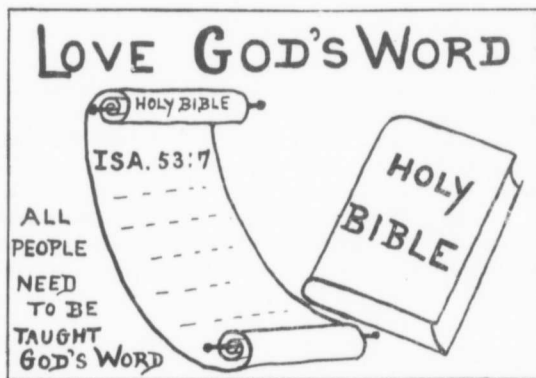 LOVE GOD'S WORD
HOLY BIBLE
ISA. 53:7
ALL
PEOPLE
NEED
TO BE
TAUGHT
GOD'S WORD
HOLY
BIBLE